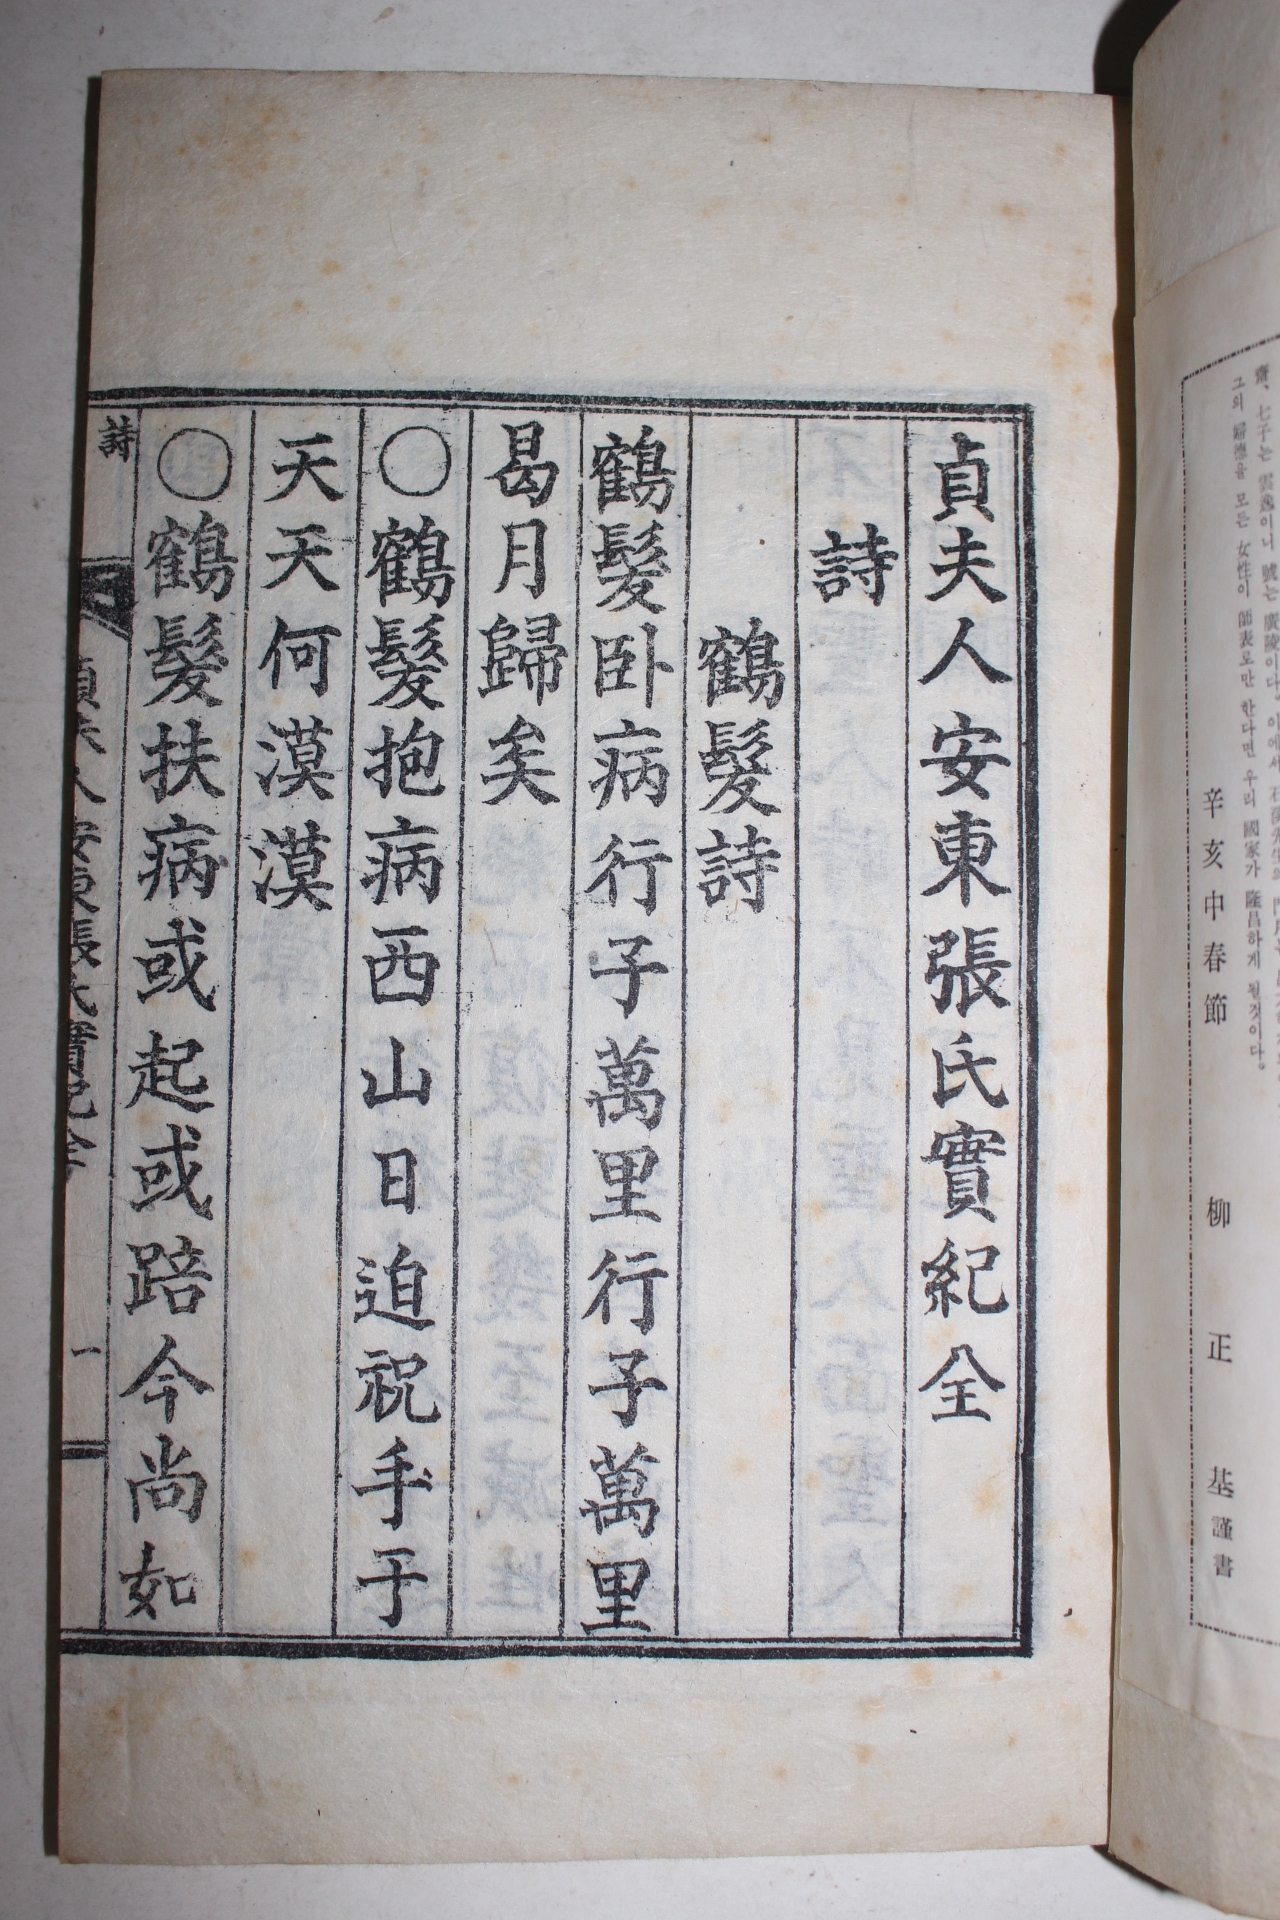 齋、七子는 雲逸이니 號는 廣陵이다. 이에서
그의 歸德을 모든 女性이 師表로만 한다면 우리 國家가 隆昌하게 될것이다。
辛亥中春節 柳正基謹書
貞夫人安東張氏實紀全
詩
鶴髮詩
鶴髮卧病行子萬里行子萬里
曷月歸矣
○鶴髮抱病西山日迫祝手于
天天何漠漠
○鶴髮扶病或起或踣今尚如
詩
貞夫人安東張氏實紀全
一